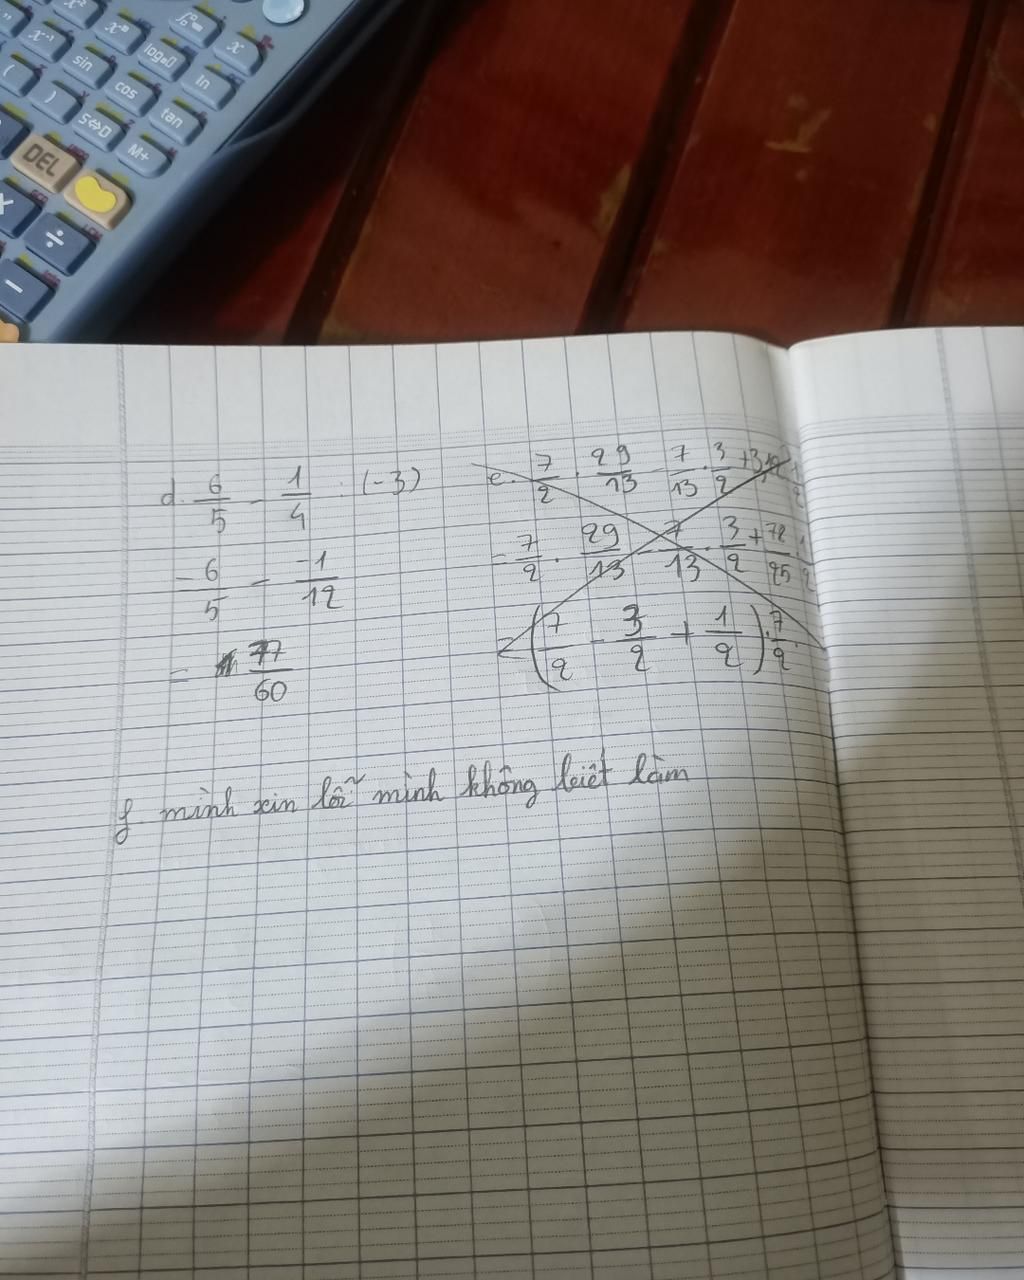 x⁻¹ sin cos tan
log▪▯ ln x
( ) S⇔D M+
DEL
÷
−
d. 6/5 - 1/4 : (-3)
= 6/5 - -1/12
= 77/60
e. 7/2 . 29/13 - 7/13 . 3/2
= 7/2 . 29/13 - 7/13 . 3/2 + 78/25
= (7/2 - 3/2 + 1/2) . 7/2
f. mình xin lỗi mình không biết làm